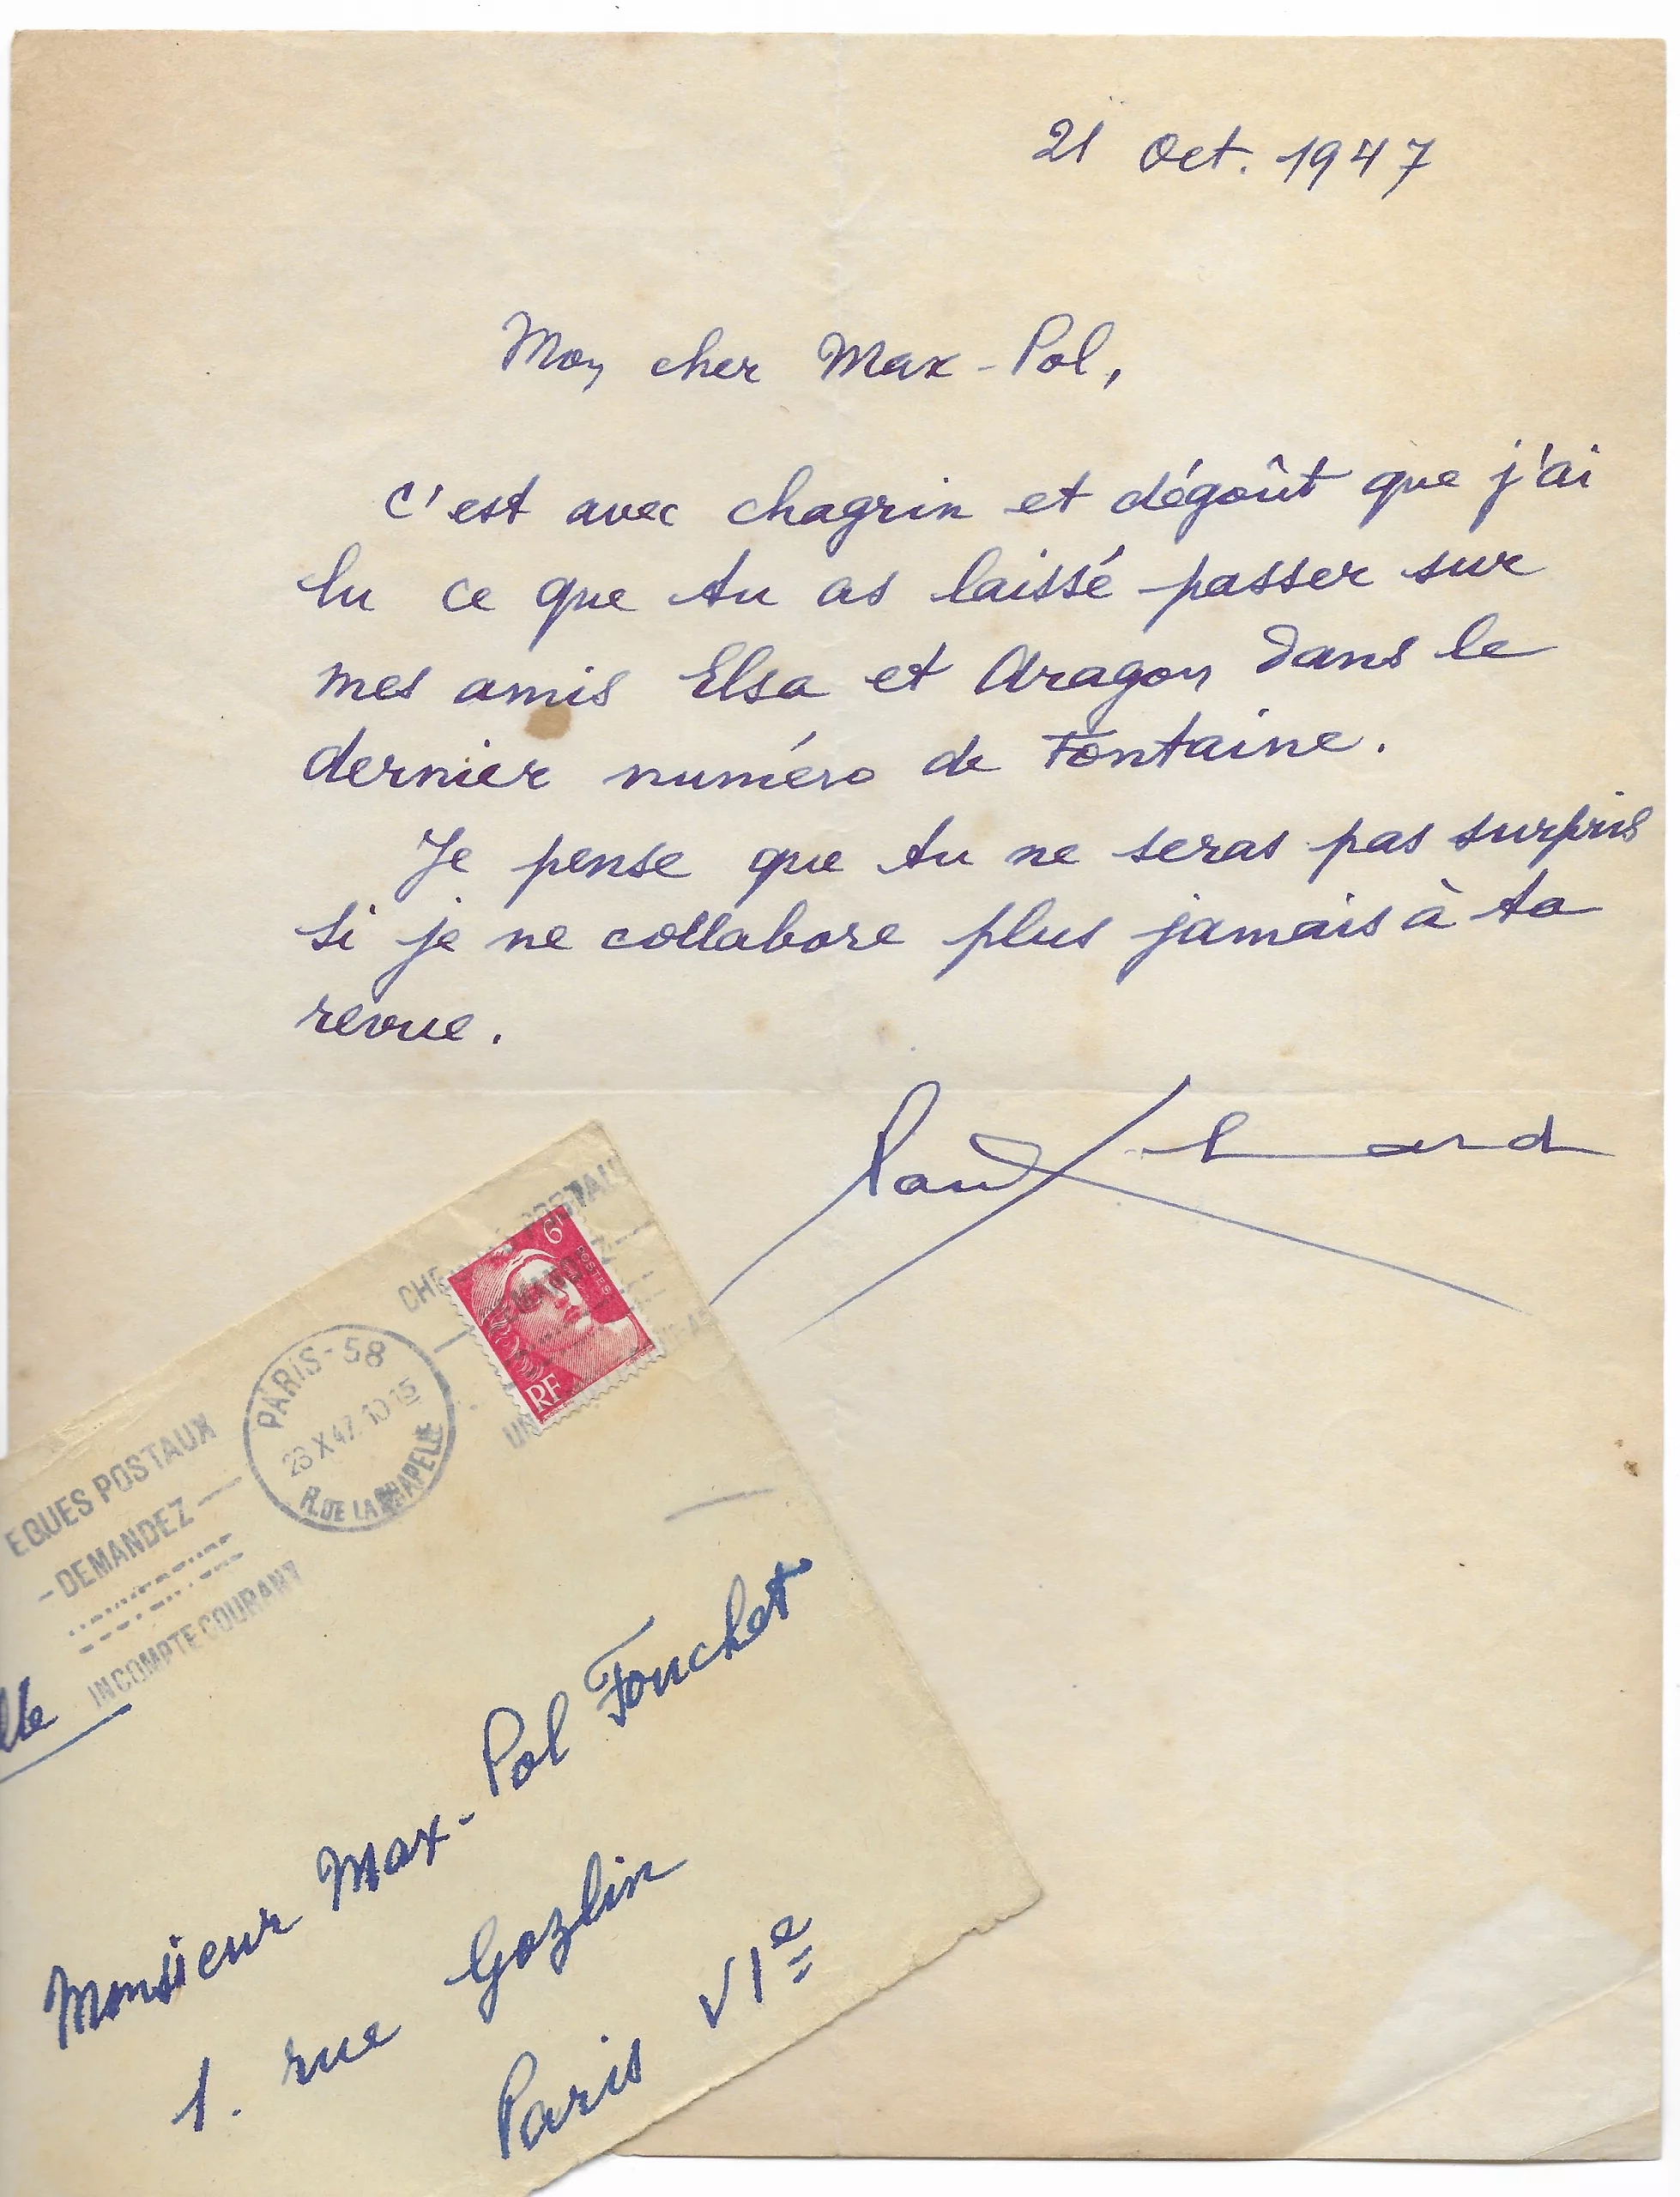 21 Oct. 1947
Mon cher Max-Pol,
C'est avec chagrin et dégoût que j'ai
lu ce que tu as laissé passer sur
mes amis Elsa et Aragon dans le
dernier numéro de Fontaine.
Je pense que tu ne seras pas surpris
si je ne collabore plus jamais à ta
revue.
Paul Eluard
POSTAUX
DEMANDEZ
6F
POSTES
RF
UN
PARIS-58
23 X 47 10 15
R. DE LA CHAPELLE
EQUES POSTAUX
-DEMANDEZ-
UN COMPTE COURANT
lle
Monsieur Max-Pol Fouchet
1. rue Gozlin
Paris VIe